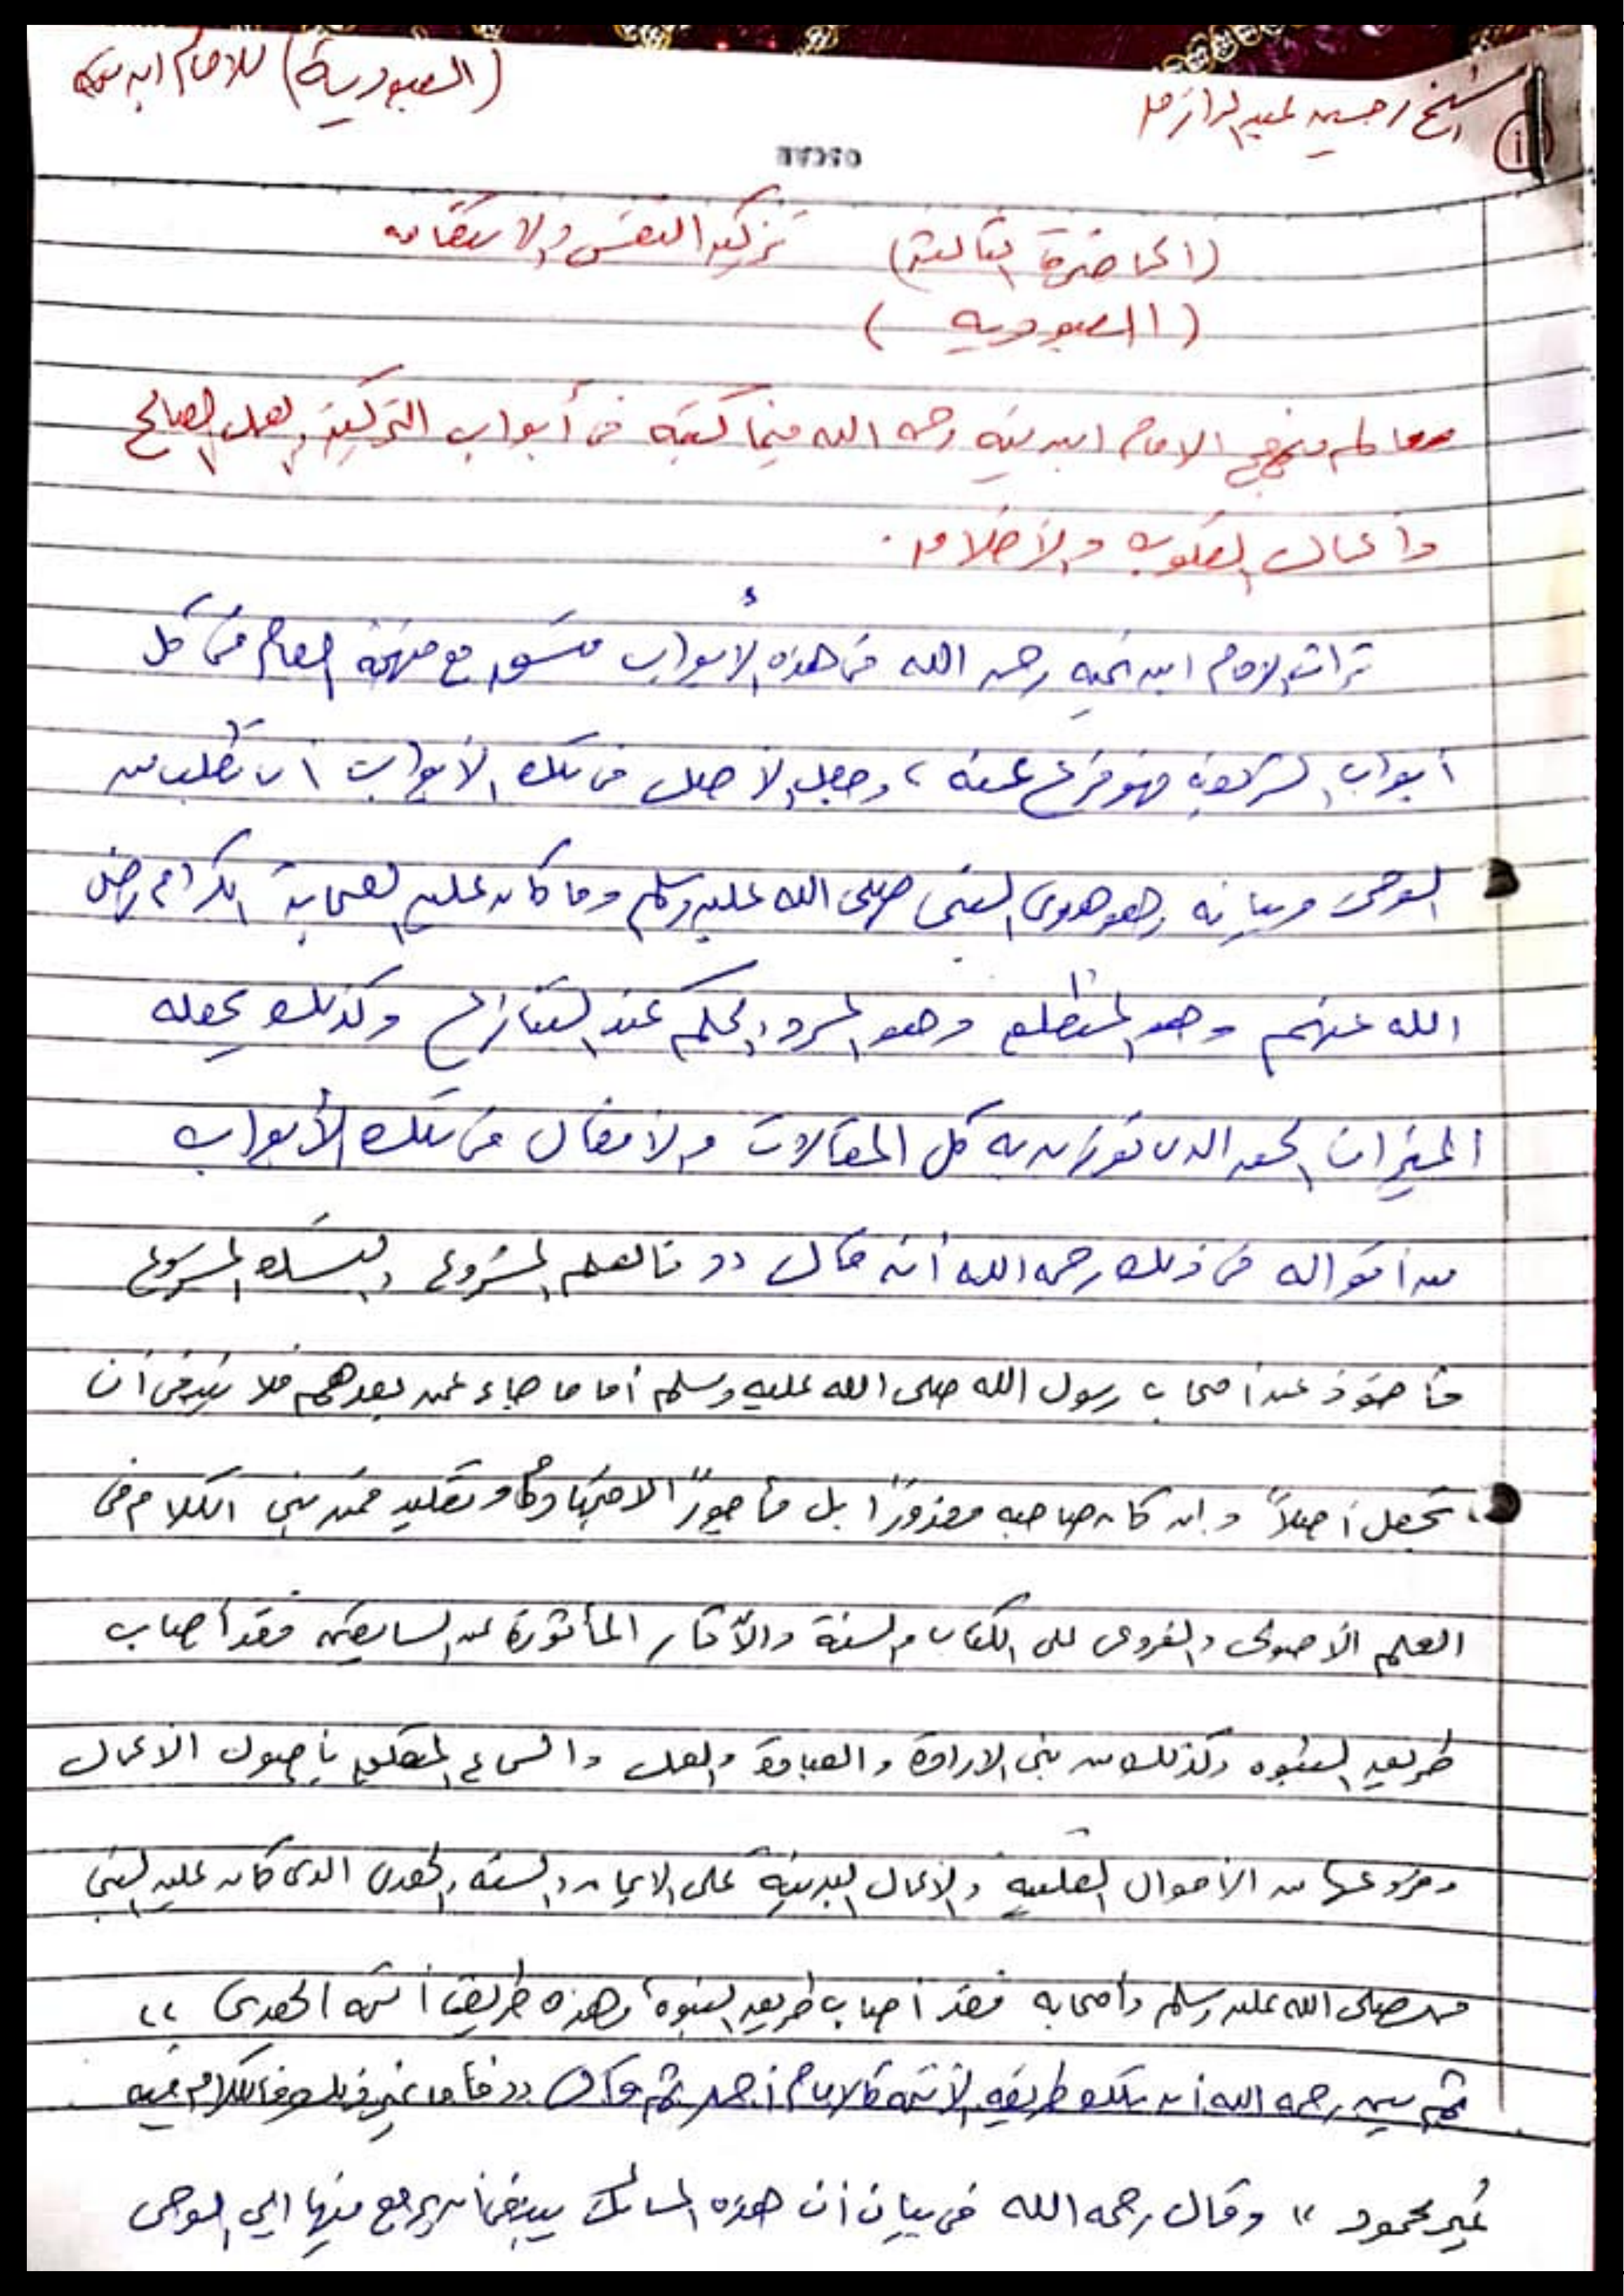 (العبودية) للامام ابن تيمية
الشيخ / حسين عبد الرازق
١
OSCAR
(المحاضرة الثالثة) تزكية النفس والاستقامه
(العبوديه)
معالم منهج الامام ابن تيميه رحمه الله فيما كتبه فى أبواب التزكية والعمل الصالح
وأعمال القلوب والأخلاق.
تراث الامام ابن تيميه رحمه الله فى هذه الأبواب متسق مع منهجه العام فى كل
أبواب الشريعة فهو فرع عنه ، وجعل الأصل فى تلك الأبواب أن تطلب من
الوحى وبيانه وهو هدى النبى صلى الله عليه وسلم وما كان عليه الصحابة الكرام رضى
الله عنهم وهو المنطلق وهو المرد والحكم عند التنازع وكذلك يجعله
الميزان الحق الذى توزن به كل المقالات والافعال فى تلك الأبواب
من أقواله فى ذلك رحمه الله أنه قال " فالعلم المشروع والنسك المشروع
مأخوذ عن أصحاب رسول الله صلى الله عليه وسلم أما ما جاء عمن بعدهم فلا ينبغى أن
يجعل أصلاً وإن كان صاحبه معذوراً بل مأجوراً لاجتهاد أو تقليد فمن بنى الكلام فى
العلم الأصولى والفروعى على الكتاب والسنة والآثار المأثورة عن السابقين فقد أصاب
طريق النبوه وكذلك من بنى الارادة والعبادة والعمل والسماع المتعلق بأصول الأعمال
وفروعها من الأحوال القلبيه والأعمال البدنية على الايمان والسنه والهدى الذى كان عليه النبى
محمد صلى الله عليه وسلم وأصحابه فقد أصاب طريق النبوة وهذه طريقة أئمه الهدى "
ثم بين رحمه الله أن تلك طريقه الأئمه كالامام أحمد ثم قال " فأما غير ذلك فالكلام فيه
غير محمود " وقال رحمه الله فى بيان أن هذه المسالك ينبغى أن يرجع فيها الى الوحى